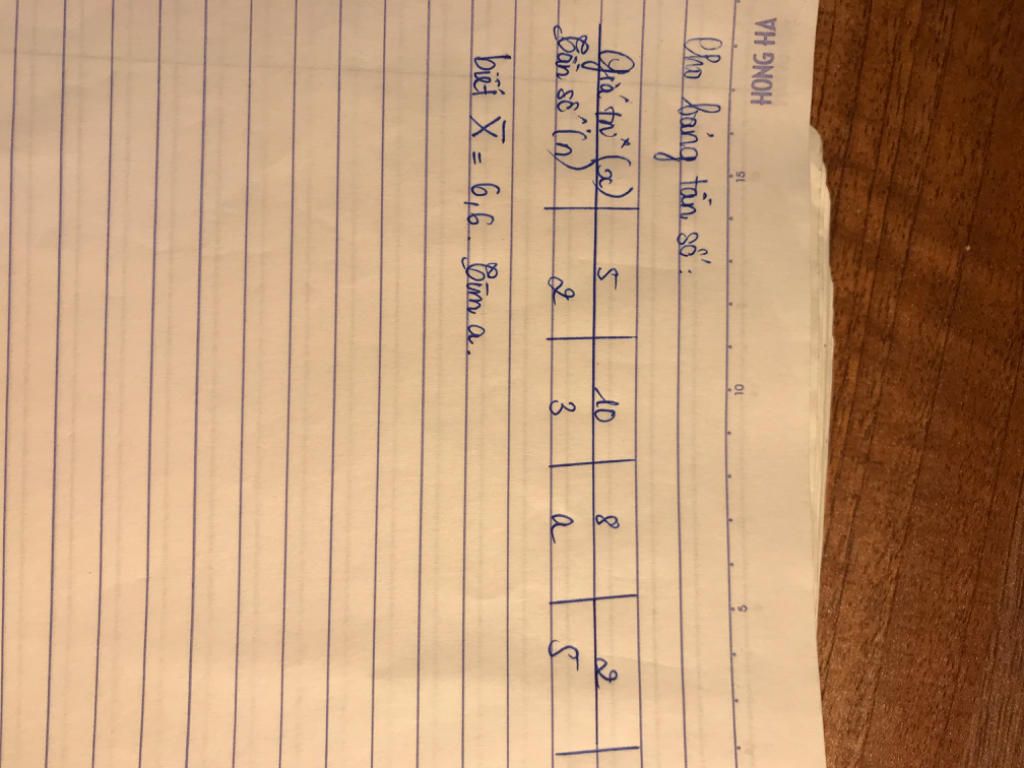 HONG HA
15 10 5
Cho bảng tần số:
Giá trị (x) 5 10 8 2
Tần số (n) 2 3 a 5
biết X̄ = 6,6. Tìm a.